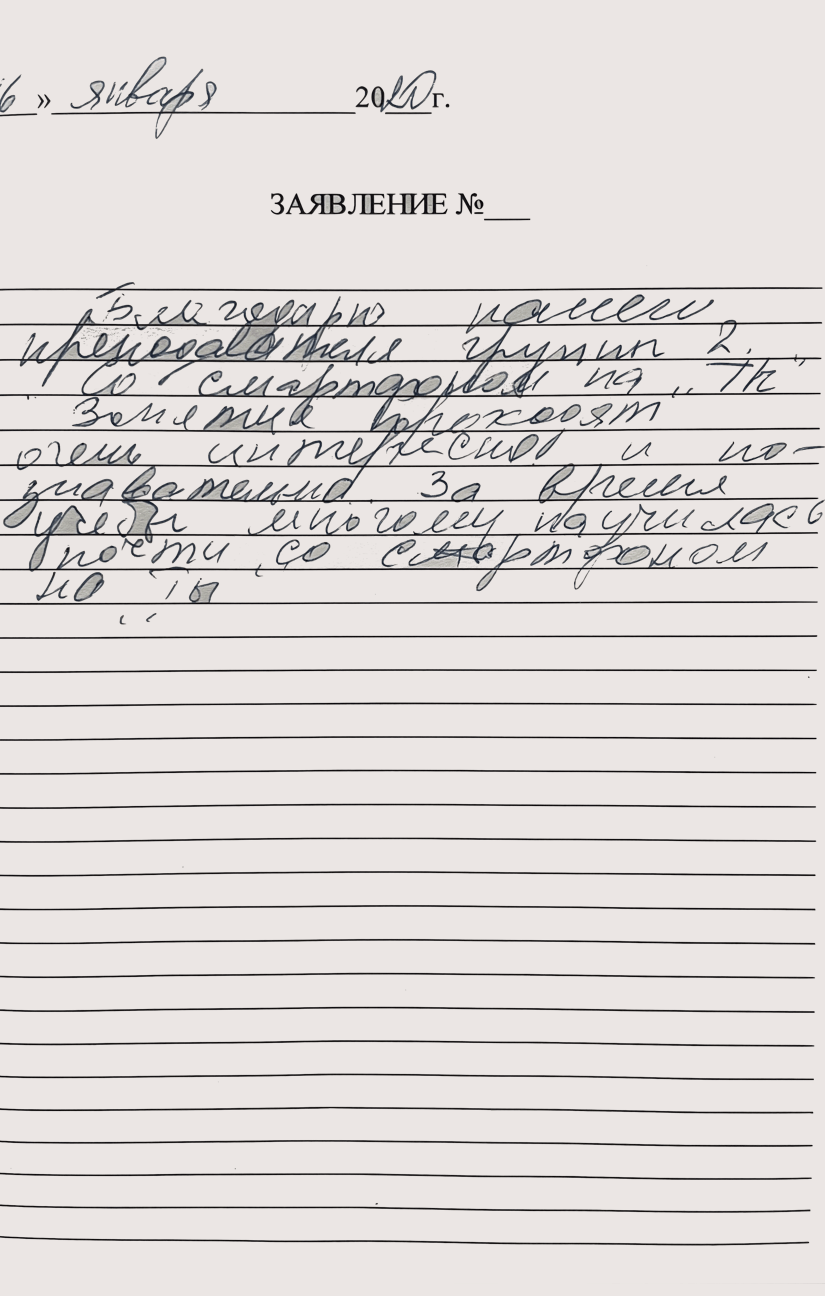 6 » января 2020 г.
ЗАЯВЛЕНИЕ №
Благодарю нашего
преподавателя группы 2.
"Со смартфоном на „Ты"
Занятия проходят
очень интересно и по-
знавательно. За время
учебы многому научилась
почти „со смартфоном
на Ты"